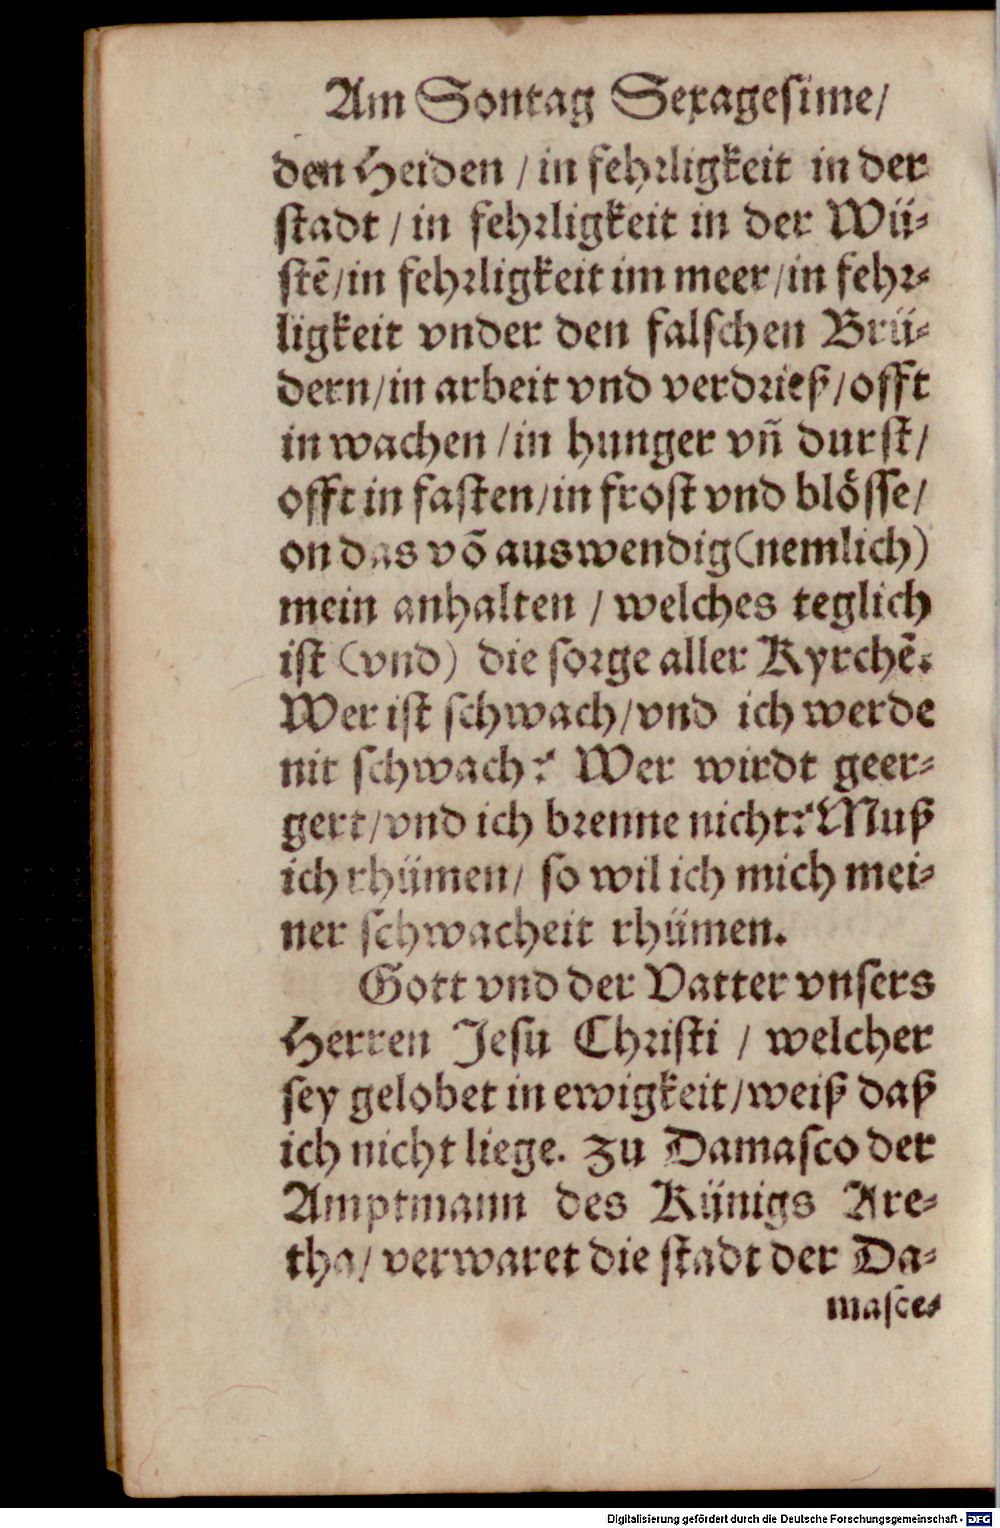 Am Sontag Sexagesime/
den Heiden / in fehrligkeit in der
stadt / in fehrligkeit in der Wü-
stē/in fehrligkeit im meer/in fehr-
ligkeit vnder den falschen Brü-
dern/in arbeit vnd verdrieß/offt
in wachen /in hunger vñ durst/
offt in fasten/in frost vnd blösse/
on das võ auswendig(nemlich)
mein anhalten / welches teglich
ist (vnd) die sorge aller Kyrchē.
Wer ist schwach/vnd ich werde
nit schwach? Wer wirdt geer-
gert/vnd ich brenne nicht? Muß
ich rhümen/ so wil ich mich mei-
ner schwacheit rhümen.
Gott vnd der Vatter vnsers
Herren Jesu Christi / welcher
sey gelobet in ewigkeit/weiß daß
ich nicht liege. Zu Damasco der
Amptmann des Künigs Are-
tha/ verwaret die stadt der Da-
masce-
Digitalisierung gefördert durch die Deutsche Forschungsgemeinschaft - DFG